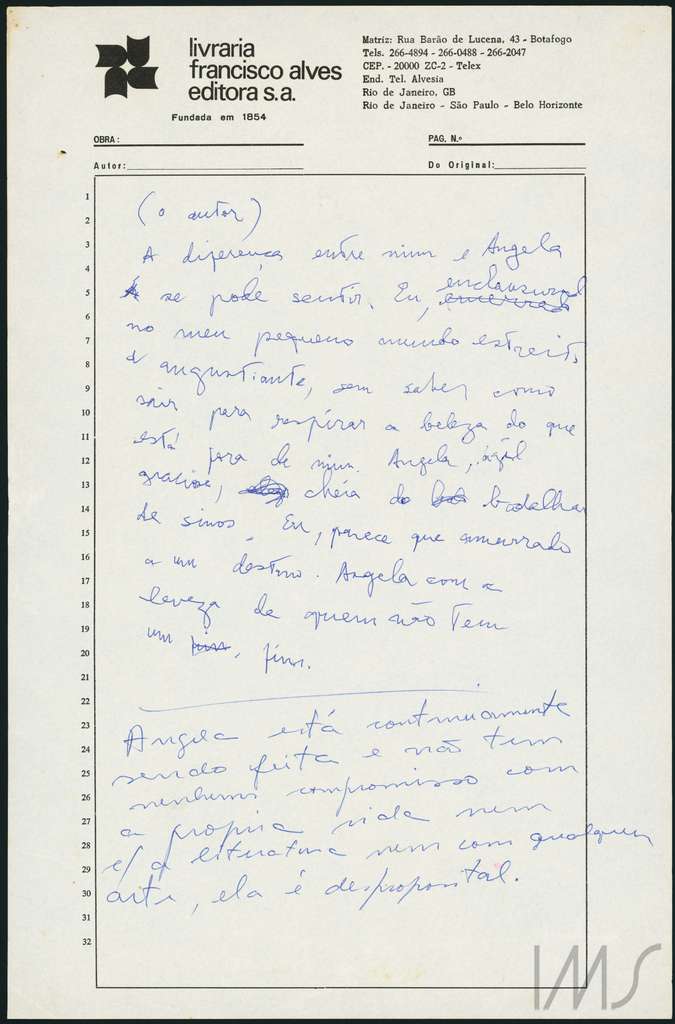 livraria
francisco alves
editora s.a.
Fundada em 1854
Matriz: Rua Barão de Lucena, 43 - Botafogo
Tels. 266-4894 - 266-0488 - 266-2047
CEP. - 20000 ZC-2 - Telex
End. Tel. Alvesia
Rio de Janeiro, GB
Rio de Janeiro - São Paulo - Belo Horizonte
OBRA:
PAG. N.º
Autor:
Do Original:
1
2
3
4
5
6
7
8
9
10
11
12
13
14
15
16
17
18
19
20
21
22
23
24
25
26
27
28
29
30
31
32
(o autor)
A diferença entre mim e Angela
se pode sentir. Eu, enclausurado
no meu pequeno mundo estreito
e angustiante, sem saber como
sair para respirar a beleza do que
está fora de mim. Angela, ágil
graciosa, cheia do badalhar
de sinos. Eu, parece que amarrado
a um destino. Angela com a
leveza de quem não tem
um fim.
Angela está continuamente
sendo feita e não tem
nenhum compromisso com
a propria vida nem
c/ a literatura nem com qualquer
arte, ela é desproposital.
IMS